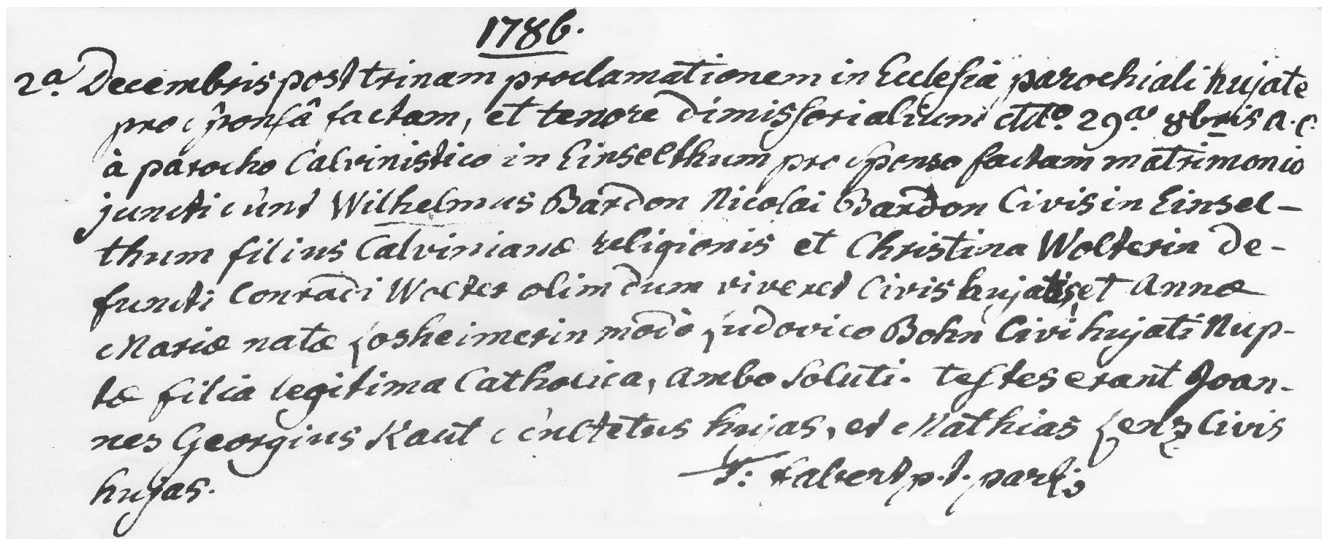 1786.
2a. Decembris post trinam proclamationem in Ecclesiâ parochiali hujate
pro sponsâ factam, et tenore dimissorialium ddto. 29a. 8bris a. c.
à parocho Calvinistico in Einselthum pro sponso factam matrimonio
juncti sunt Wilhelmus Bardon Nicolai Bardon Civis in Einsel-
thum filius Calvinianæ religionis et Christina Wolterin de-
functi Conradi Wolter olim dum viveret Civis hujatis, et Annæ
Mariæ natæ Losheimerin modò Ludovico Bohn Civi hujati Nup-
tæ filia legitima Catholica, ambo soluti. Testes erant Joan-
nes Georgius Kaut scultetus hujas, et Mathias Lenz Civis
hujas.
F: falvert p. t. par